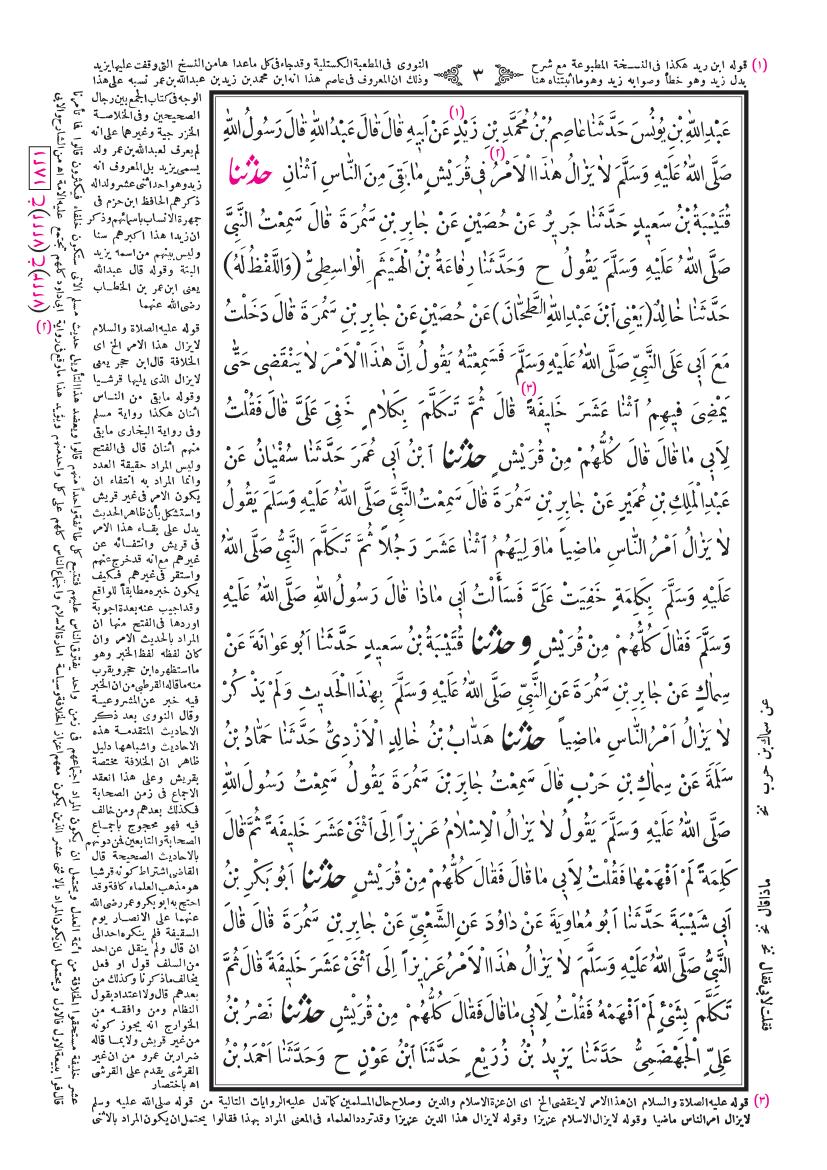 (١) قوله ابن زيد هكذا فى النسخة المطبوعة مع شرح
بدل زيد وهو خطأ وصوابه زيد وهو ما أثبتناه هنا
٣
النووى فى المطبعة الكستلية وقدجاء فى كل ماعدا هامن النسخ التى وقفت عليها يزيد
وذلك ان المعروف فى عاصم هذا انه ابن محمد بن زيد بن عبدالله بن عمر نسبه على هذا
عَبْدِاللّٰهِ بْنِ يُونُسَ حَدَّثَنَا عَاصِمُ بْنُ مُحَمَّدِ بْنِ زَيْدٍ (١) عَنْ اَبيهِ قَالَ قَالَ عَبْدُاللّٰهِ قَالَ رَسُولُ اللّٰهِ
صَلَّى اللّٰهُ عَلَيْهِ وَسَلَّمَ لاَ يَزَالُ هٰذَا الْاَمْرُ (٢) فى قُرَيْشٍ مَا بَقِىَ مِنَ النَّاسِ اثْنَانِ حدثنا
قُتَيْبَةُ بْنُ سَعيدٍ حَدَّثَنَا جَريرٌ عَنْ حُصَيْنٍ عَنْ جَابِرِ بْنِ سَمُرَةَ قَالَ سَمِعْتُ النَّبِىَّ
صَلَّى اللّٰهُ عَلَيْهِ وَسَلَّمَ يَقُولُ ح وَحَدَّثَنَا رِفَاعَةُ بْنُ الْهَيْثَمِ الْوَاسِطِىُّ (وَاللَّفْظُ لَهُ)
حَدَّثَنَا خَالِدٌ (يَعْنِى ابْنَ عَبْدِاللّٰهِ الطَّحَّانَ) عَنْ حُصَيْنٍ عَنْ جَابِرِ بْنِ سَمُرَةَ قَالَ دَخَلْتُ
مَعَ اَبى عَلَى النَّبِىِّ صَلَّى اللّٰهُ عَلَيْهِ وَسَلَّمَ فَسَمِعْتُهُ يَقُولُ اِنَّ هٰذَا الْاَمْرَ لاَ يَنْقَضى حَتّٰى
يَمْضِىَ فيهِمُ اثْنَا عَشَرَ خَليفَةً (٣) قَالَ ثُمَّ تَكَلَّمَ بِكَلاَمٍ خَفِىَ عَلَىَّ قَالَ فَقُلْتُ
لِاَبى مَا قَالَ قَالَ كُلُّهُمْ مِنْ قُرَيْشٍ حدثنا ابْنُ اَبى عُمَرَ حَدَّثَنَا سُفْيَانُ عَنْ
عَبْدِ الْمَلِكِ بْنِ عُمَيْرٍ عَنْ جَابِرِ بْنِ سَمُرَةَ قَالَ سَمِعْتُ النَّبِىَّ صَلَّى اللّٰهُ عَلَيْهِ وَسَلَّمَ يَقُولُ
لاَ يَزَالُ اَمْرُ النَّاسِ مَاضِياً مَا وَلِيَهُمُ اثْنَا عَشَرَ رَجُلاً ثُمَّ تَكَلَّمَ النَّبِىُّ صَلَّى اللّٰهُ
عَلَيْهِ وَسَلَّمَ بِكَلِمَةٍ خَفِيَتْ عَلَىَّ فَسَأَلْتُ اَبى مَاذَا قَالَ رَسُولُ اللّٰهِ صَلَّى اللّٰهُ عَلَيْهِ
وَسَلَّمَ فَقَالَ كُلُّهُمْ مِنْ قُرَيْشٍ و حدثنا قُتَيْبَةُ بْنُ سَعيدٍ حَدَّثَنَا اَبُو عَوَانَةَ عَنْ
سِمَاكٍ عَنْ جَابِرِ بْنِ سَمُرَةَ عَنِ النَّبِىِّ صَلَّى اللّٰهُ عَلَيْهِ وَسَلَّمَ بِهٰذَا الْحَديثِ وَلَمْ يَذْكُرْ
لاَ يَزَالُ اَمْرُ النَّاسِ مَاضِياً حدثنا هَدَّابُ بْنُ خَالِدٍ الْاَزْدِىُّ حَدَّثَنَا حَمَّادُ بْنُ
سَلَمَةَ عَنْ سِمَاكِ بْنِ حَرْبٍ قَالَ سَمِعْتُ جَابِرَ بْنَ سَمُرَةَ يَقُولُ سَمِعْتُ رَسُولَ اللّٰهِ
صَلَّى اللّٰهُ عَلَيْهِ وَسَلَّمَ يَقُولُ لاَ يَزَالُ الْاِسْلاَمُ عَزيزاً اِلَى اثْنَىْ عَشَرَ خَليفَةً ثُمَّ قَالَ
كَلِمَةً لَمْ اَفْهَمْهَا فَقُلْتُ لِاَبى مَا قَالَ فَقَالَ كُلُّهُمْ مِنْ قُرَيْشٍ حدثنا اَبُو بَكْرِ بْنُ
اَبى شَيْبَةَ حَدَّثَنَا اَبُو مُعَاوِيَةَ عَنْ دَاوُدَ عَنِ الشَّعْبِىِّ عَنْ جَابِرِ بْنِ سَمُرَةَ قَالَ قَالَ
النَّبِىُّ صَلَّى اللّٰهُ عَلَيْهِ وَسَلَّمَ لاَ يَزَالُ هٰذَا الْاَمْرُ عَزيزاً اِلَى اثْنَىْ عَشَرَ خَليفَةً قَالَ ثُمَّ
تَكَلَّمَ بِشَىْءٍ لَمْ اَفْهَمْهُ فَقُلْتُ لِاَبى مَا قَالَ فَقَالَ كُلُّهُمْ مِنْ قُرَيْشٍ حدثنا نَصْرُ بْنُ
عَلِىٍّ الْجَهْضَمِىُّ حَدَّثَنَا يَزيدُ بْنُ زُرَيْعٍ حَدَّثَنَا ابْنُ عَوْنٍ ح وَحَدَّثَنَا اَحْمَدُ بْنُ
الوجه فى كتاب الجمع بين رجال
الصحيحين وفى الخلاصة
الخزرجية وغيرهما على انه
لم يعرف لعبدالله بن عمر ولد
يسمى يزيد بل المعروف انه
زيد وهو احد اثنى عشر ولداله
ذكرهم الحافظ ابن حزم فى
جمهرة الانساب باسمائهم وذكر
ان زيدا هذا اكبرهم سنا
وليس بينهم من اسمه يزيد
البتة وقوله قال عبدالله
يعنى ابن عمر بن الخطاب
رضى الله عنهما
(٢) قوله عليه الصلاة والسلام
لايزال هذا الامر الخ اى
الخلافة قال ابن حجر يعنى
لايزال الذى يليها قرشيا
وقوله مابقى من الناس
اثنان هكذا رواية مسلم
وفى رواية البخارى مابقى
منهم اثنان قال فى الفتح
وليس المراد حقيقة العدد
وانما المراد به انتفاء ان
يكون الامر فى غير قريش
واستشكل بأن ظاهر الحديث
يدل على بقاء هذا الامر
فى قريش وانتفائه عن
غيرهم مع انه قد خرج عنهم
واستقر فى غيرهم فكيف
يكون خبره مطابقاً للواقع
وقد اجيب عنه بعدة اجوبة
اوردها فى الفتح منها ان
المراد بالحديث الامر وان
كان لفظه لفظ الخبر وهو
ما استظهره ابن حجر ويقرب
منه ماقاله القرطبى من ان الخبر
فيه خبر عن المشروعية
وقال النووى بعد ذكر
الاحاديث المتقدمة هذه
الاحاديث واشباهها دليل
ظاهر ان الخلافة مختصة
بقريش وعلى هذا انعقد
الاجماع فى زمن الصحابة
فكذلك بعدهم ومن خالف
فيه فهو محجوج باجماع
الصحابة والتابعين فمن دونهم
بالاحاديث الصحيحة قال
القاضى اشتراط كونه قرشيا
هو مذهب العلماء كافة وقد
احتج به ابوبكر وعمر رضى الله
عنهما على الانصار يوم
السقيفة فلم ينكره احد الى
ان قال ولم ينقل عن احد
من السلف قول او فعل
يخالف ماذكرنا وكذلك من
بعدهم قال ولا اعتداد بقول
النظام ومن وافقه من
الخوارج انه يجوز كونه
من غير قريش ولا بما قاله
ضرار بن عمرو من ان غير
القرشى يقدم على القرشى
اه باختصار
١٨٢١
خ ٧٢٢٢
خ ٧٢٢٣
عن سماك بن حرب نخ
(٣) قوله عليه الصلاة والسلام ان هذا الامر لاينقضى الخ اى ان عزة الاسلام والدين وصلاح حال المسلمين كما تدل عليه الروايات التالية من قوله صلى الله عليه وسلم
لايزال امر الناس ماضيا وقوله لايزال الاسلام عزيزا وقوله لايزال هذا الدين عزيزا وقد تردد العلماء فى المعنى المراد بهذا فقالوا يحتمل ان يكون المراد بالاثنى